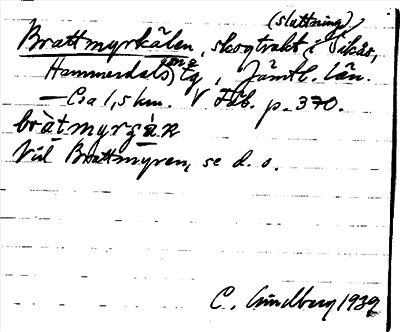 (slattning)
Brattmyrkälen, skogtrakt i Sikås,
Hammerdals sn, Jämtl. län.
— Ca 1,5 km. V p. 370.
bràtmyrgàɴ
Vid Brattmyren, se d. o.
C. Lindberg 1939